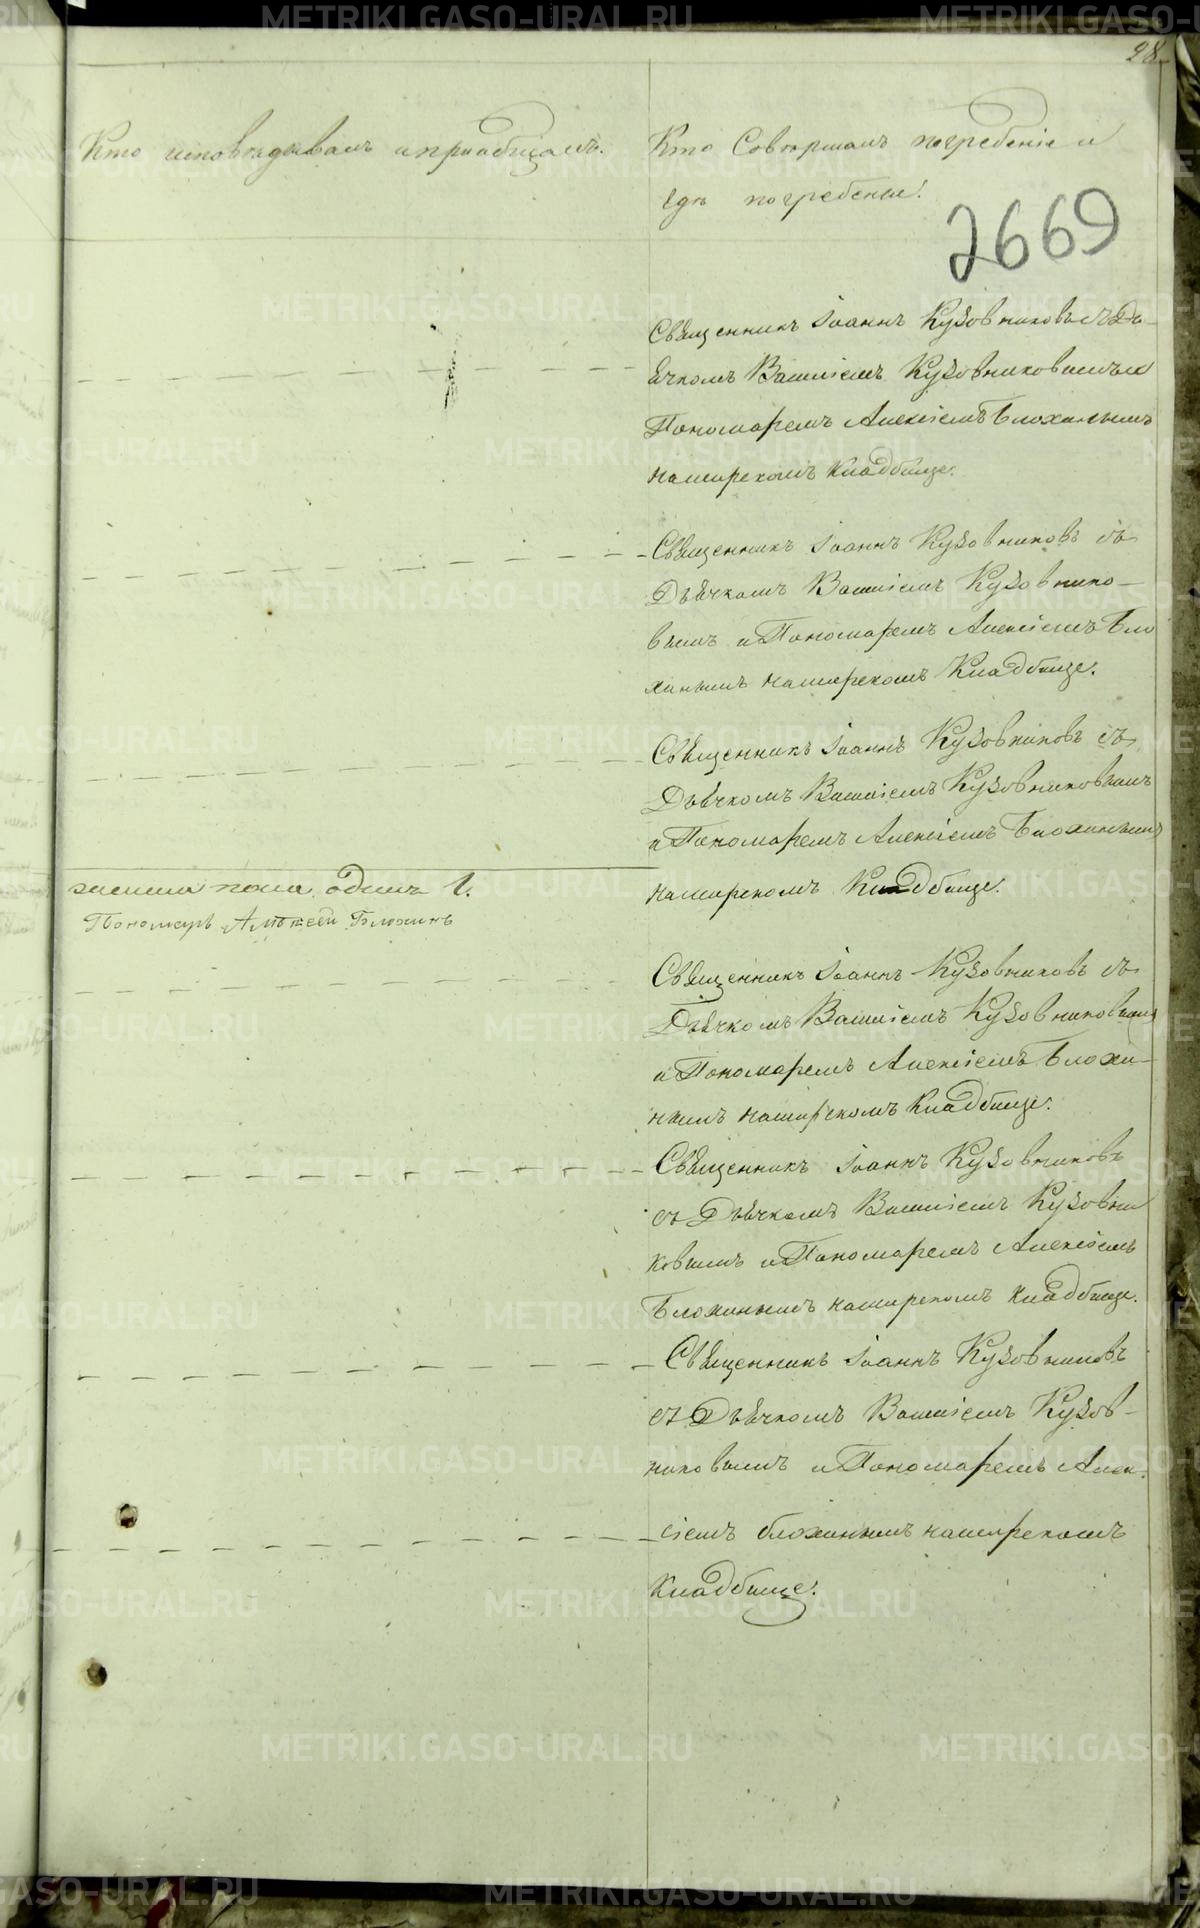 28.
Кто исповѣдывалъ и приобщалъ.
Кто Совершалъ погребеніе и
гдѣ погребены.
2669
Священникъ Іоаннъ Кузовниковъ съ Дь-
ячкомъ Василіемъ Кузовниковымъ и
Пономаремъ Алексіемъ Блохинымъ
на мирскомъ Кладбище.
Священникъ Іоаннъ Кузовниковъ съ
Дьячкомъ Василіемъ Кузовнико-
вымъ и Пономаремъ Алексіемъ Бло
хинымъ на мирскомъ Кладбище.
Священникъ Іоаннъ Кузовниковъ съ
Дьячкомъ Василіемъ Кузовниковымъ
и Пономаремъ Алексіемъ Блохинымъ
на мирскомъ Кладбище.
женска пола одинъ 1.
Пономарь Алѣксѣй Блохинъ
Священникъ Іоаннъ Кузовниковъ съ
Дьячкомъ Василіемъ Кузовниковымъ
и Пономаремъ Алексіемъ Блохи-
нымъ на мирскомъ Кладбище.
Священникъ Іоаннъ Кузовниковъ
съ Дьячкомъ Василіемъ Кузовни
ковымъ и Пономаремъ Алексіемъ
Блохинымъ на мирскомъ Кладбище.
Священникъ Іоаннъ Кузовниковъ
съ Дьячкомъ Василіемъ Кузов-
никовымъ и Пономаремъ Алек-
сіемъ Блохинымъ на мирскомъ
Кладбище.
METRIKI.GASO-URAL.RU